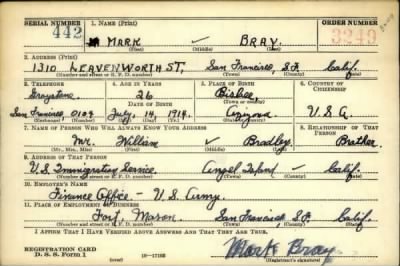 SERIAL NUMBER 1. NAME (Print) ORDER NUMBER
442 MARK BRAY. 3249
(First) (Middle) (Last)
2. ADDRESS (Print)
1310 LEAVENWORTH ST, San Francisco, S.F. Calif.
(Number and street or R. F. D. number) (Town) (County) (State)
3. TELEPHONE 4. AGE IN YEARS 5. PLACE OF BIRTH 6. COUNTRY OF CITIZENSHIP
Graystone 26 Bisbee
DATE OF BIRTH (Town or county)
San Francisco, 0109 July, 14, 1914. Arizona U.S.A.
(Exchange) (Number) (Mo.) (Day) (Yr.) (State or country)
7. NAME OF PERSON WHO WILL ALWAYS KNOW YOUR ADDRESS 8. RELATIONSHIP OF THAT PERSON
Mr. William Bradley Brother
(Mr., Mrs., Miss) (First) (Middle) (Last)
9. ADDRESS OF THAT PERSON
U.S. Immigration Service. Angel Island - Calif.
(Number and street or R. F. D. number) (Town) (County) (State)
10. EMPLOYER'S NAME
Finance Office - U.S. Army.
11. PLACE OF EMPLOYMENT OR BUSINESS
Fort, Mason. San Francisco, S.F. Calif.
(Number and street or R. F. D. number) (Town) (County) (State)
I AFFIRM THAT I HAVE VERIFIED ABOVE ANSWERS AND THAT THEY ARE TRUE.
REGISTRATION CARD
D. S. S. Form 1 (over) 16-17105 Mark Bray
(Registrant's signature)